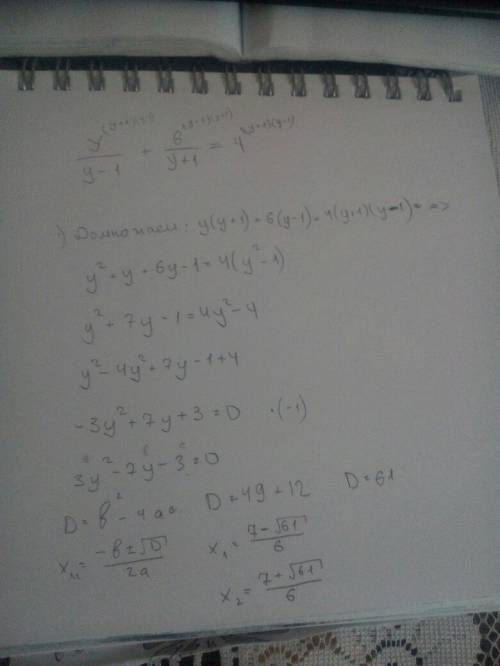 y^((y+1)(y-1)) / (y-1) + 6^((y+1)(y-1)) / (y+1) = 4^((y+1)(y-1))
1) Домножаем: y(y+1)+6(y-1)=4(y+1)(y-1)= =>
y²+y+6y-1=4(y²-1)
y²+7y-1=4y²-4
y²-4y²+7y-1+4
-3y²+7y+3=0 ·(-1)
3y²-7y-3=0
D=b²-4ac D=49+12 D=61
x = (-b±√D)/2a x₁=(7-√61)/6
x₂=(7+√61)/6